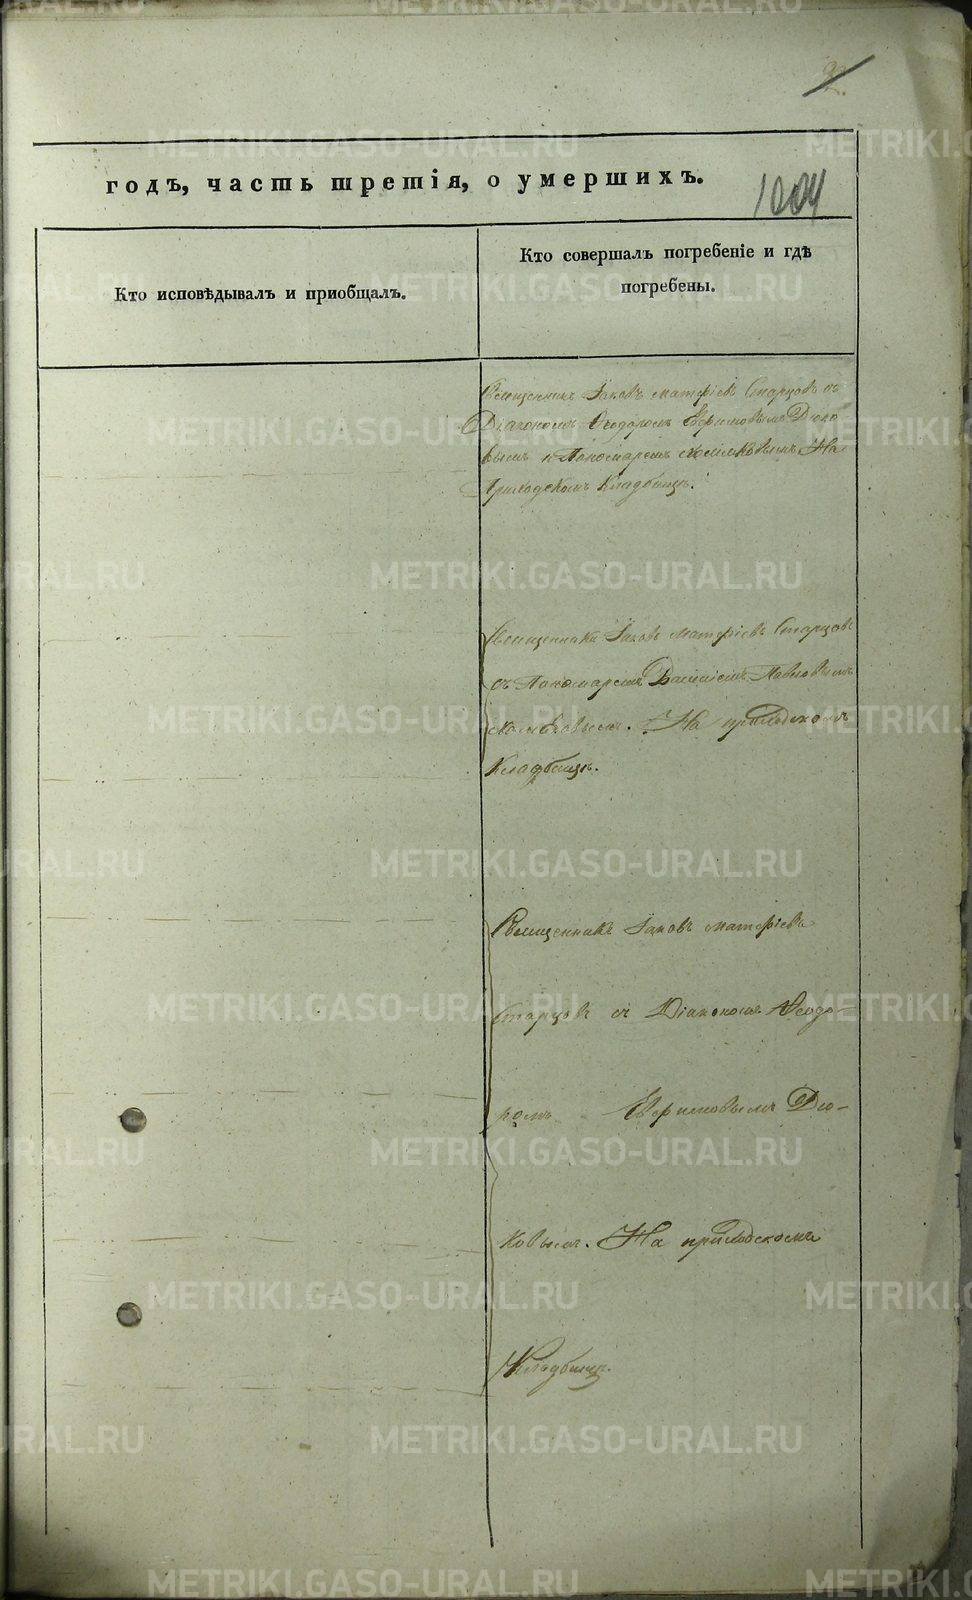 32.
годъ, часть третія, о умершихъ.
1004
Кто исповѣдывалъ и приобщалъ.
Кто совершалъ погребеніе и гдѣ
погребены.
Священникъ Іаковъ Матѳіевъ Старцовъ съ
Діакономъ Ѳеодоромъ Дюко-
вымъ и Пономаремъ На
Приходскомъ Кладбищѣ.
Священникъ Іаковъ Матѳіевъ Старцовъ
съ Пономаремъ Василіемъ Павловымъ
На приходскомъ
Кладбищѣ.
Священникъ Іаковъ Матѳіевъ
Старцовъ съ Діакономъ Ѳеодо-
ромъ Дю-
ковымъ. На приходскомъ
Кладбищѣ.
METRIKI.GASO-URAL.RU